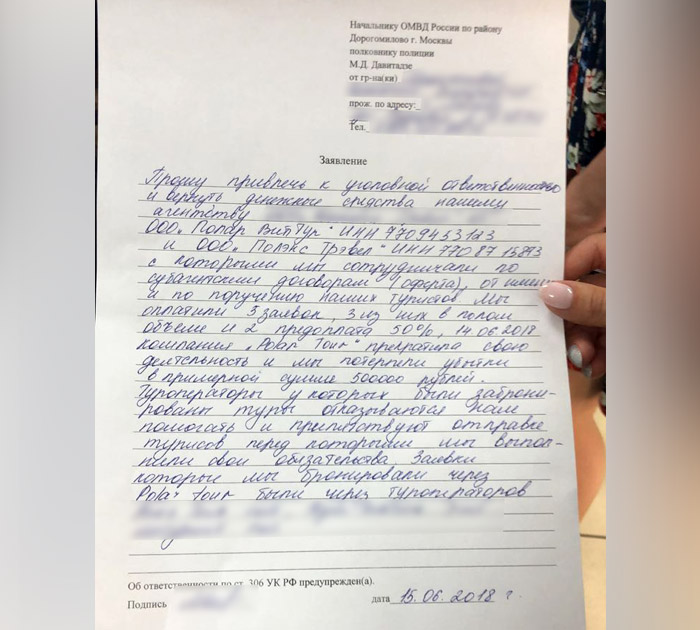 Начальнику ОМВД России по району
Дорогомилово г. Москвы
полковнику полиции
М.Д. Давитадзе
от гр-на(ки)
прож. по адресу:
Тел.
Заявление
Прошу привлечь к уголовной ответственности
и вернуть денежные средства нашему
агентству
ООО„ Полар Вит Тур" ИНН 7709453123
и ООО„ Полэкс Трэвел" ИНН 77087
с которыми мы сотрудничали по
субагентским договорам (оферта), от имени
и по поручению наших туристов мы
оплатили 5 заявок, 3 из них в полном
объеме и 2 предоплата 50%, 14.06.2018
компания „Polar Tour" прекратила свою
деятельность и мы потерпели убытки
в примерной сумме 500000 рублей.
Туроператоры у которых были заброни-
рованы туры отказываются нам
помогать и препятствуют отправке
турисов перед которыми мы выпол-
нили свои обязательства. Заявки
которые мы бронировали через
Polar tour были через туроператоров
Об ответственности по ст. 306 УК РФ предупрежден(а).
Подпись
дата 15.06.2018 г.